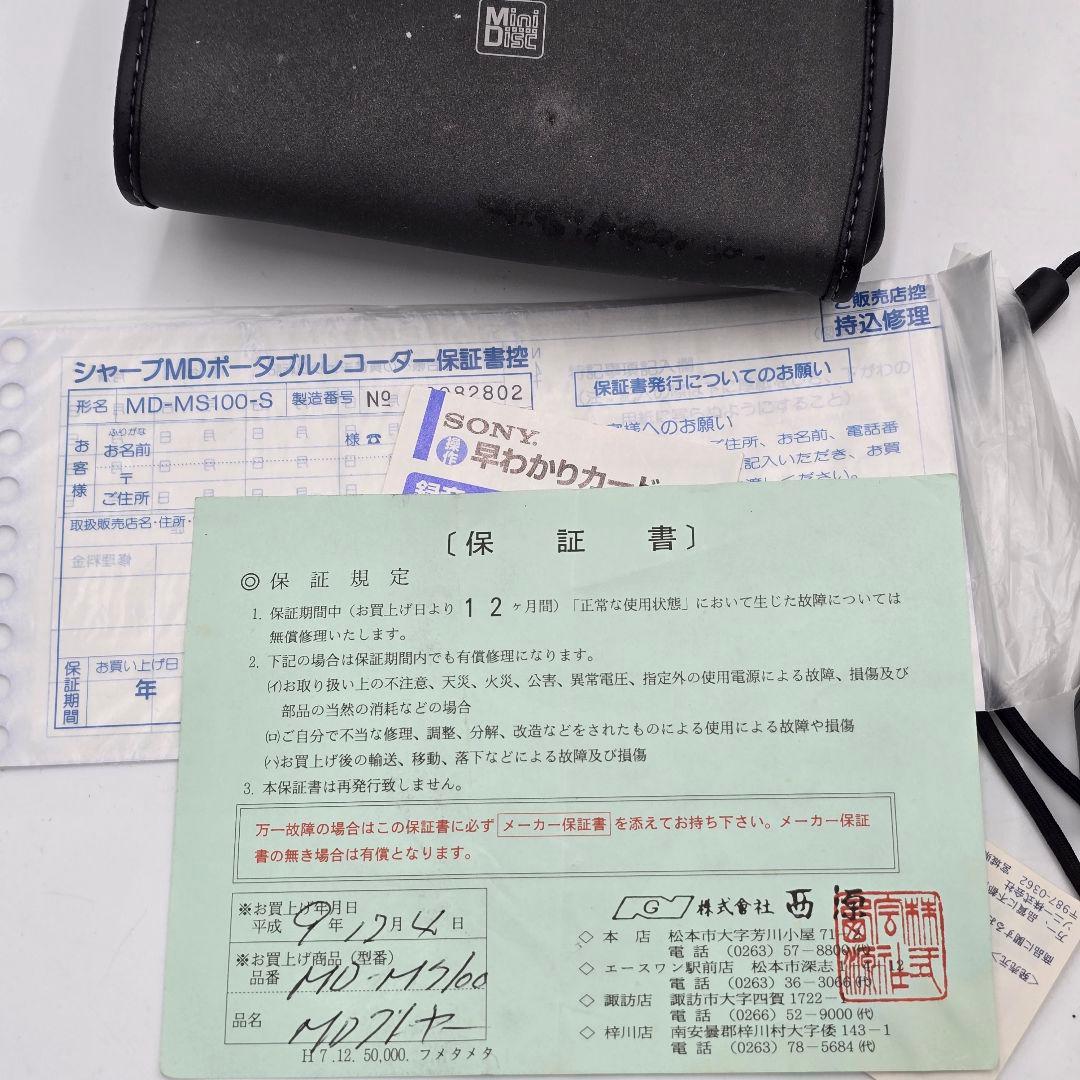 Mini
Disc
ご販売店控
持込修理
シャープMDポータブルレコーダー保証書控
保証書発行についてのお願い
形名 MD-MS100-S 製造番号 № 082802
ふりがな
お名前 様 ☎
お客様
〒
ご住所
様へのお願い
ご住所、お名前、電話番
記入いただき、お買
SONY.
操作 早わかりカード
取扱販売店名・住所・
修理料金
保証期間
お買い上げ日
年
〔保 証 書〕
◎ 保 証 規 定
1. 保証期間中(お買上げ日より 12 ヶ月間)「正常な使用状態」において生じた故障については
無償修理いたします。
2. 下記の場合は保証期間内でも有償修理になります。
(イ)お取り扱い上の不注意、天災、火災、公害、異常電圧、指定外の使用電源による故障、損傷及び
部品の当然の消耗などの場合
(ロ)ご自分で不当な修理、調整、分解、改造などをされたものによる使用による故障や損傷
(ハ)お買上げ後の輸送、移動、落下などによる故障及び損傷
3. 本保証書は再発行致しません。
万一故障の場合はこの保証書に必ず メーカー保証書 を添えてお持ち下さい。メーカー保証
書の無き場合は有償となります。
※お買上げ年月日
平成 9年 12月 4日
※お買上げ商品(型番)
品番 MD-MS100
品名 MDプレイヤー
H 7.12. 50,000. フメタメタ
G 株式會社 西源
◇ 本 店 松本市大字芳川小屋 71-
電 話 (0263) 57-8800(代)
◇ エースワン駅前店 松本市深志 12
電 話 (0263) 36-3066(代)
◇ 諏訪店 諏訪市大字四賀 1722-
電 話 (0266) 52-9000(代)
◇ 梓川店 南安曇郡梓川村大字倭 143-1
電 話 (0263) 78-5684(代)
株式会社西源
<発売元>
ソニー株式会社
〒987-0362 宮城県